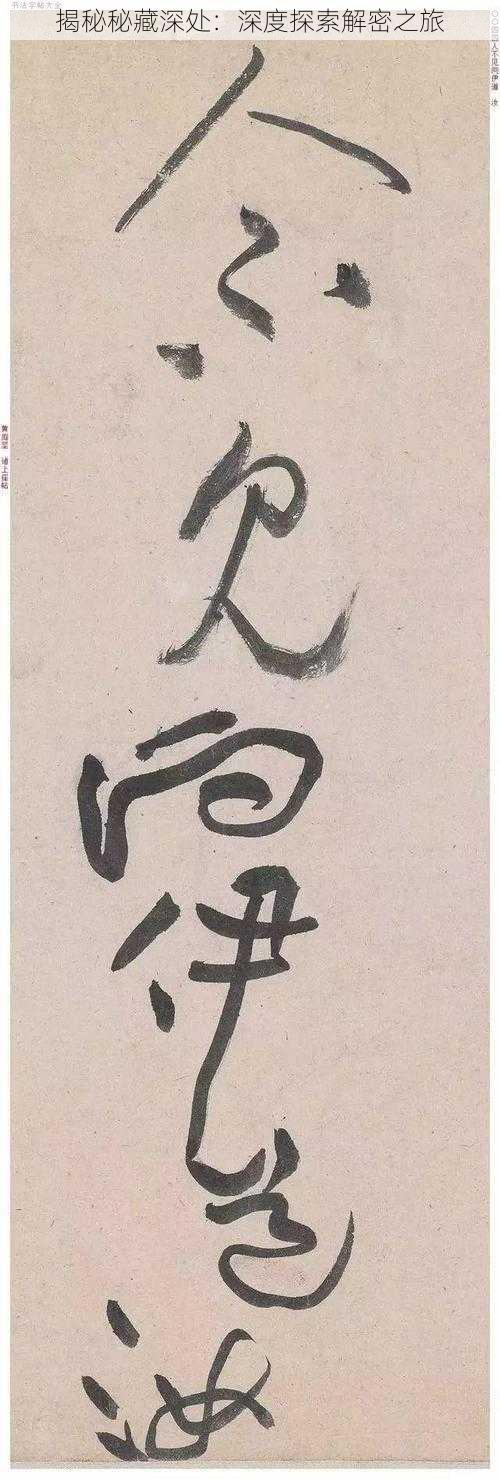 书法字帖大全
揭秘秘藏深处：深度探索解密之旅
人不见问伊道 汝
人不见问伊道汝
黄庭坚 诸上座帖